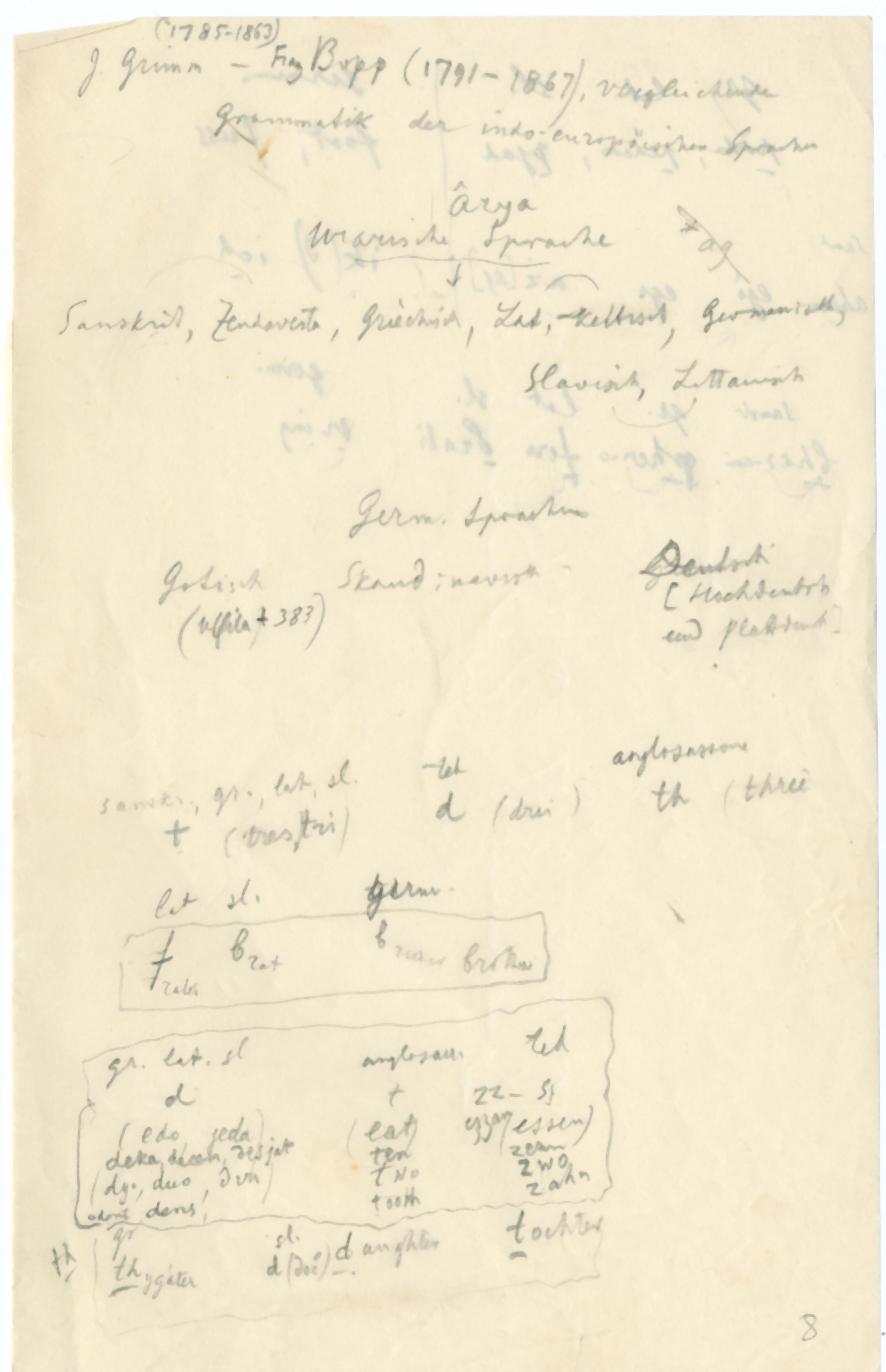 (1785-1863)
J. Grimm – Franz Bopp (1791-1867), vergleichende
Grammatik der indo-europäischen Sprachen
Ârya
Urarische Sprache
* ag
Sanskrit, Zendavesta, Griechisch, Lat, Keltisch, Germanisch,
Slavisch, Littauisch
Germ. Sprachen
Gotisch Skandinavisch - Deutsch
(Ulfila † 383) [Hochdeutsch
und Plattdeut]
sanskr., gr., lat, sl. ted anglosassone
t (tres, tri) d (drei) th (three
lat sl. germ.
frater brat bruder brother
gr. lat. sl anglosass. ted
d t zz - ss
(edo jeda) (eat) ezzan (essen)
deka, decem, desjat ten zehn
(dyo, duo, dva) two zwo
odont dens, tooth zahn
gr sl.
th thygáter d (doč) daughter tochter
8